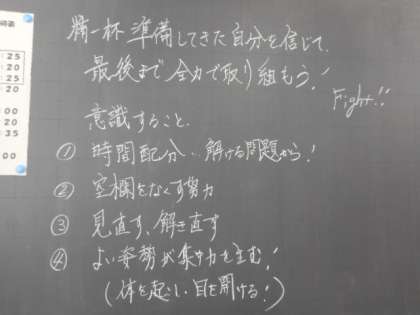 精一杯準備してきた自分を信じて、
最後まで全力で取り組もう!
Fight!!
意識すること、
① 時間配分…解ける問題から!
② 空欄をなくす努力
③ 見直す、解き直す
④ よい姿勢が集中力を生む!
(体を起こし目を開ける!)
:25
:20
:25
:20
00
:20
:35
00